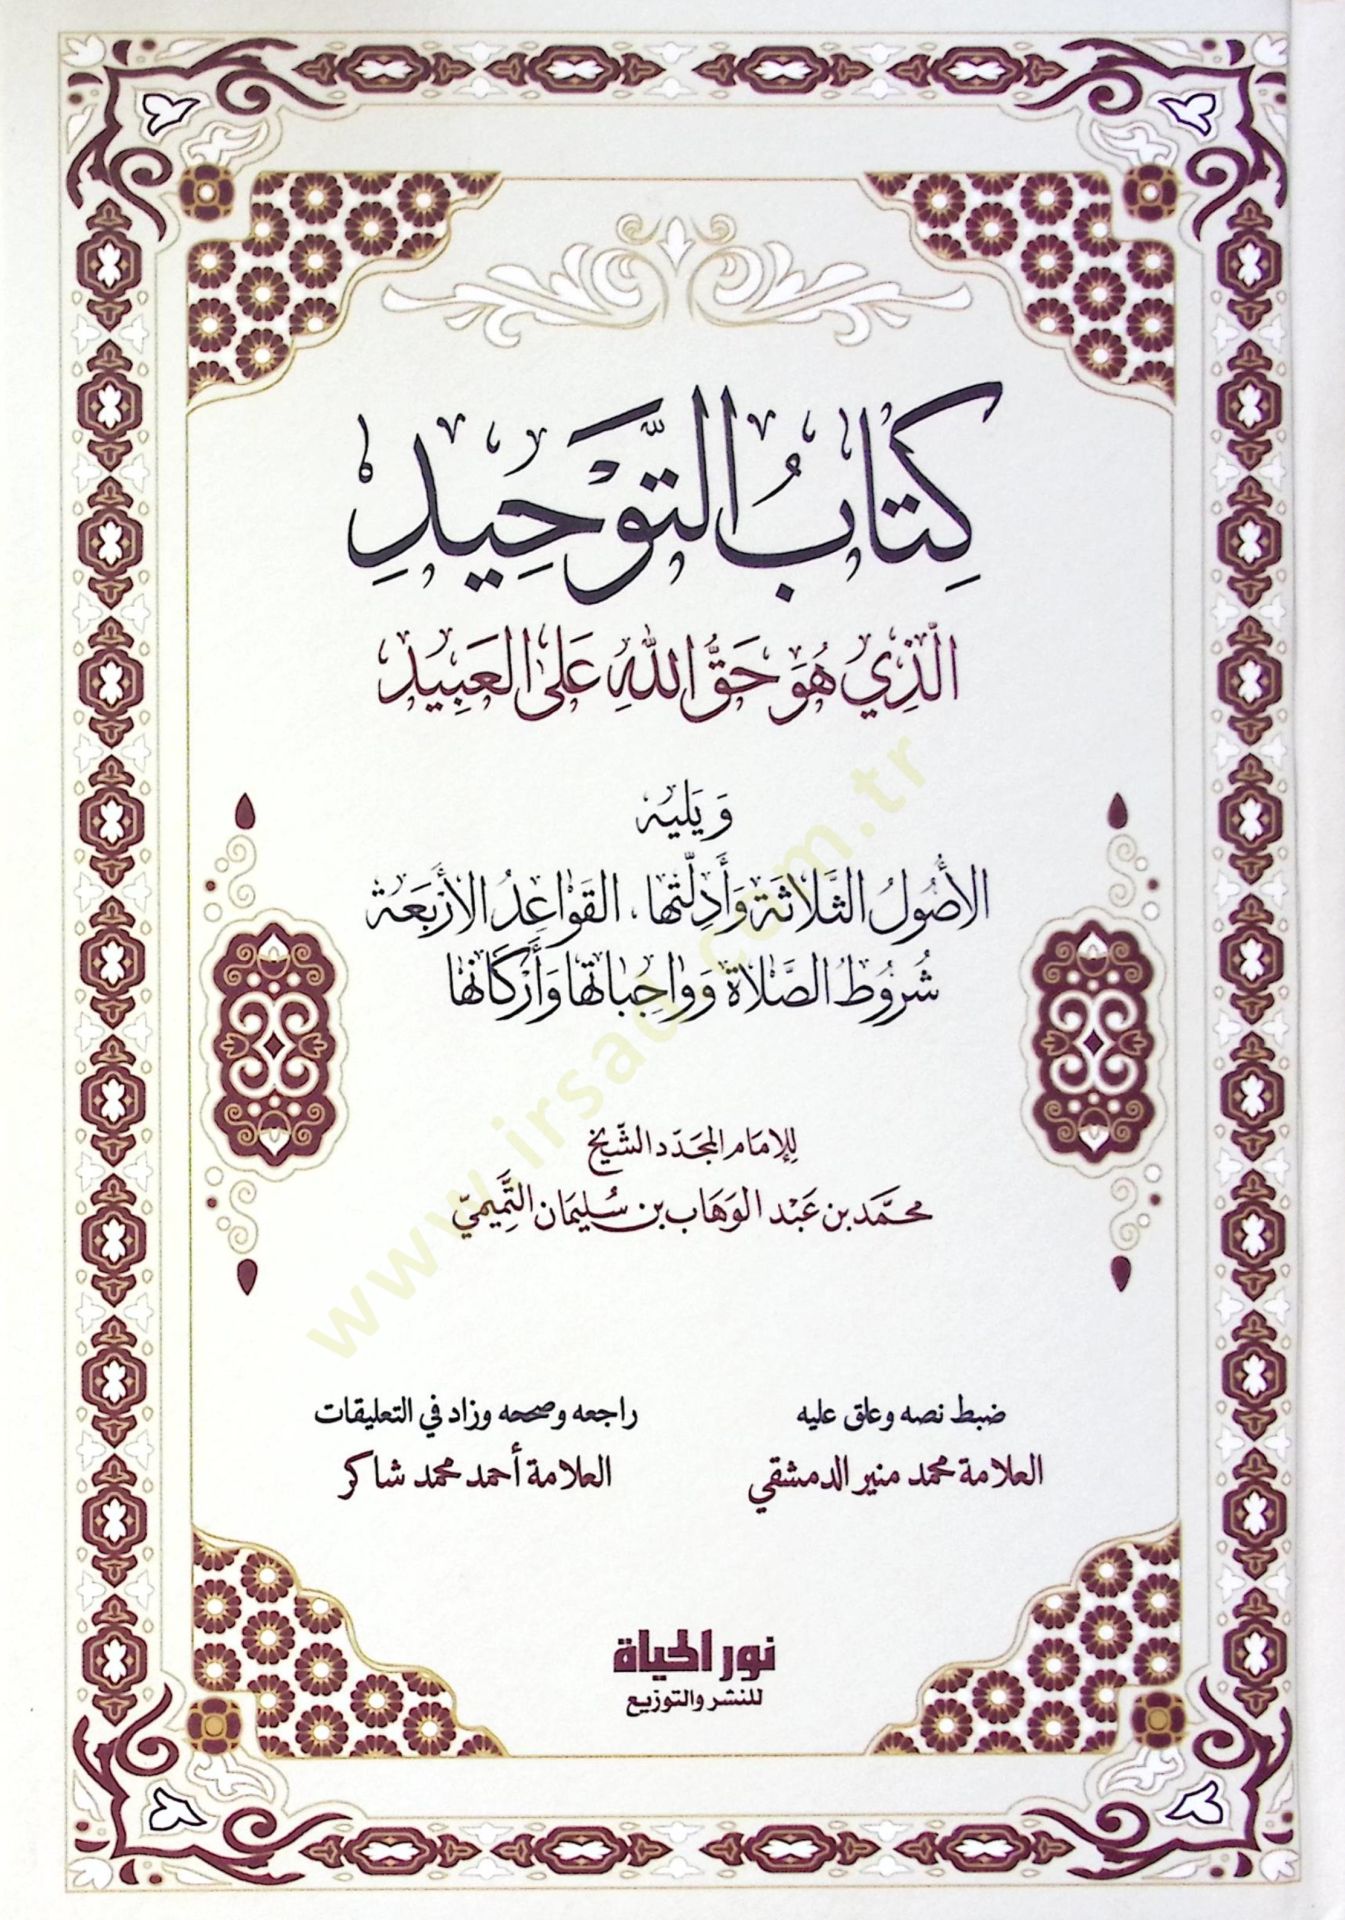 كِتَابُ التَّوْحِيدِ
الَّذِي هُوَ حَقُّ اللهِ عَلَى العَبِيدِ
وَيَلِيْهِ
الأُصُولُ الثَّلَاثَةُ وَأَدِلَّتُهَا، القَوَاعِدُ الأَرْبَعَةُ
شُرُوطُ الصَّلَاةِ وَوَاجِبَاتُهَا وَأَرْكَانُهَا
لِلإِمَامِ المُجَدِّدِ الشَّيْخِ
مُحَمَّد بن عَبْد الوَهَاب بن سُلَيمَان التَّمِيمِيّ
ضبط نصه وعلق عليه
العلامة محمد منير الدمشقي
راجعه وصححه وزاد في التعليقات
العلامة أحمد محمد شاكر
نور الحياة
للنشر والتوزيع
www.irsad.com.tr